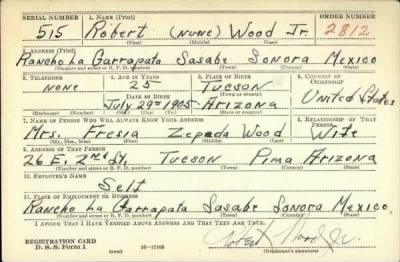 SERIAL NUMBER 1. NAME (Print) ORDER NUMBER
515 Robert (NONE) Wood Jr. 2812
(First) (Middle) (Last)
2. ADDRESS (Print)
Rancho La Garrapata Sasabe Sonora Mexico
(Number and street or R. F. D. number) (Town) (County) (State)
3. TELEPHONE 4. AGE IN YEARS 5. PLACE OF BIRTH 6. COUNTRY OF CITIZENSHIP
NONE 25 Tucson
DATE OF BIRTH (Town or county) United States
July 29th 1905 Arizona
(Exchange) (Number) (Mo.) (Day) (Yr.) (State or country)
7. NAME OF PERSON WHO WILL ALWAYS KNOW YOUR ADDRESS 8. RELATIONSHIP OF THAT PERSON
Mrs. Fresia Zepeda Wood Wife
(Mr., Mrs., Miss) (First) (Middle) (Last)
9. ADDRESS OF THAT PERSON
26 E. 2nd St. Tucson Pima Arizona
(Number and street or R. F. D. number) (Town) (County) (State)
10. EMPLOYER'S NAME
Self
11. PLACE OF EMPLOYMENT OR BUSINESS
Rancho La Garrapata Sasabe Sonora Mexico
(Number and street or R. F. D. number) (Town) (County) (State)
I AFFIRM THAT I HAVE VERIFIED ABOVE ANSWERS AND THAT THEY ARE TRUE.
Robert Wood Jr.
REGISTRATION CARD
D. S. S. Form 1 (over) 16-17105 (Registrant's signature)